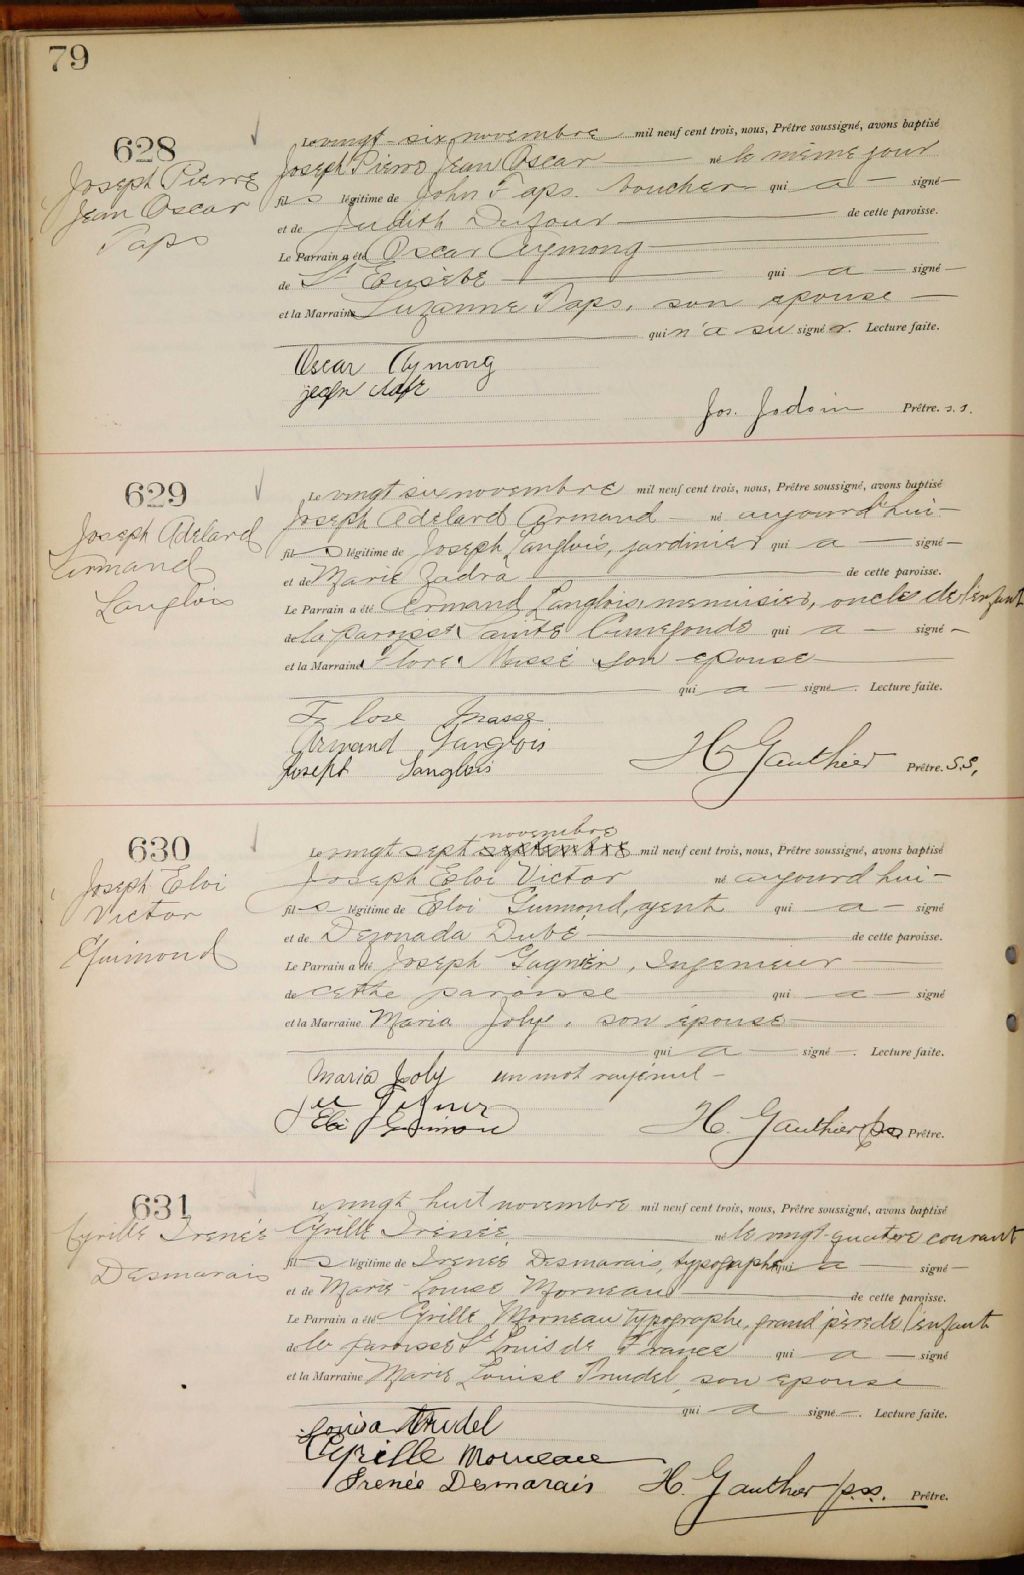 79
628
Joseph Pierre
Jean Oscar
Paps
Le vingt-six novembre mil neuf cent trois, nous, Prêtre soussigné, avons baptisé
Joseph Pierre Jean Oscar né le même jour
fils légitime de John Paps. boucher qui a signé
et de Judith Dufour de cette paroisse.
Le Parrain a été Oscar Aymong
de St Eusèbe qui a signé
et la Marraine Suzanne Paps, son epouse
qui n'a su signér. Lecture faite.
Oscar Aymong
Jos. Jodoin Prêtre. s.s.
629
Joseph Adelard
Armand
Langlois
Le vingt six novembre mil neuf cent trois, nous, Prêtre soussigné, avons baptisé
Joseph Adelard Armand né aujourd'hui
fils légitime de Joseph Langlois, jardinier qui a signé
et de Marie de cette paroisse.
Le Parrain a été Armand Langlois, menuisier, oncle de l'enfant
de la paroisse Sainte Cunegonde qui a signé
et la Marraine Flore Massé son epouse
qui a signé. Lecture faite.
Flore Masse
Armand Langlois
Joseph Langlois
H Gauthier Prêtre. S.S,
630
Joseph Eloi
Victor
Guimond
novembre
Le vingt sept septembre mil neuf cent trois, nous, Prêtre soussigné, avons baptisé
Joseph Eloi Victor né aujourd'hui
fils légitime de Eloi Guimond, agent qui a signé
et de Dezonada Dubé de cette paroisse.
Le Parrain a été Joseph Gagnier, Ingenieur
de cette paroisse qui a signé
et la Marraine Maria Joly, son épouse
qui a signé. Lecture faite.
Maria Joly un mot rayé nul
Eloi Guimond
H. Gauthier Prêtre.
631
Cyrille Irenée
Desmarais
Le vingt huit novembre mil neuf cent trois, nous, Prêtre soussigné, avons baptisé
Cyrille Irénée, né le vingt-quatre courant
fils légitime de Irenée Desmarais, typographe qui a signé
et de Marie-Louise Morneau de cette paroisse.
Le Parrain a été Cyrille Morneau typographe, grand'père de l'enfant
de la paroisse St Louis de France qui a signé
et la Marraine Marie Louise Trudel, son epouse
qui a signé. Lecture faite.
Louisa Trudel
Cyrille Morneau
Irenée Desmarais
H. Gauthier p.s.s. Prêtre.